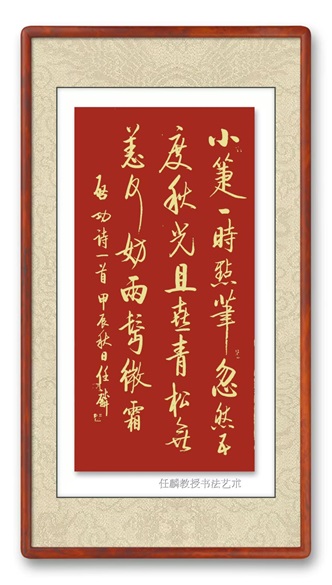 小箑一時點筆忽然五
度秋光且喜青松無
恙何妨兩鬢微霜
啟功詩一首 甲辰秋日任麟
任麟教授书法艺术